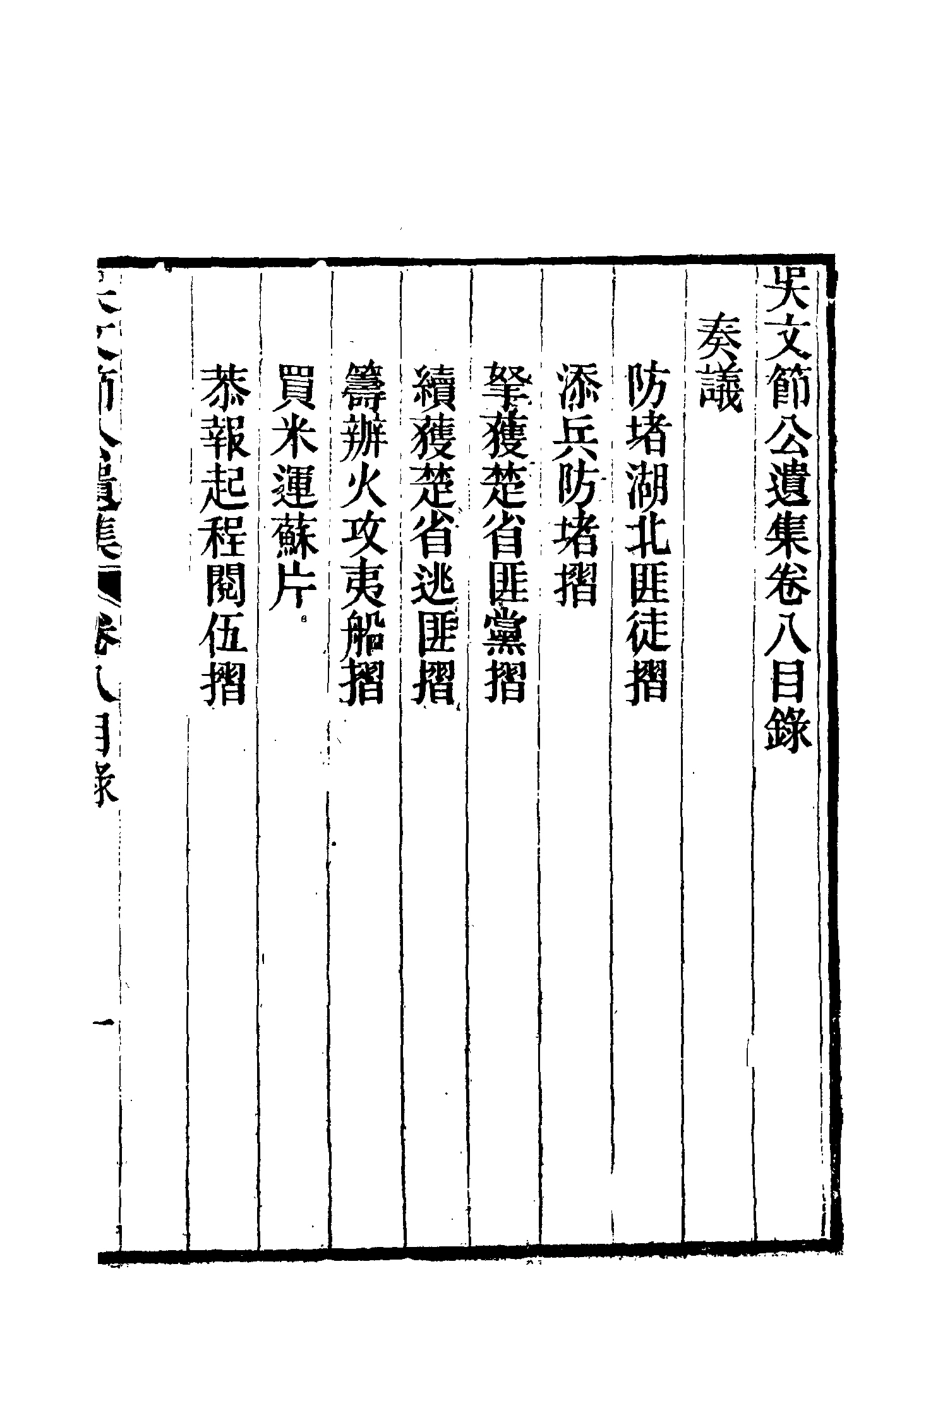 吳文節公遺集卷八目錄
奏議
防堵湖北匪徒摺
添兵防堵摺
拏獲楚省匪黨摺
續獲楚省逃匪摺
籌辦火攻夷船摺
買米運蘇片
恭報起程閱伍摺
吳文節公遺集 卷八目錄 一